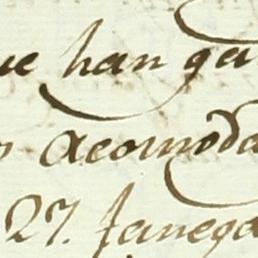 ue han ga
acomoda
27. fanega